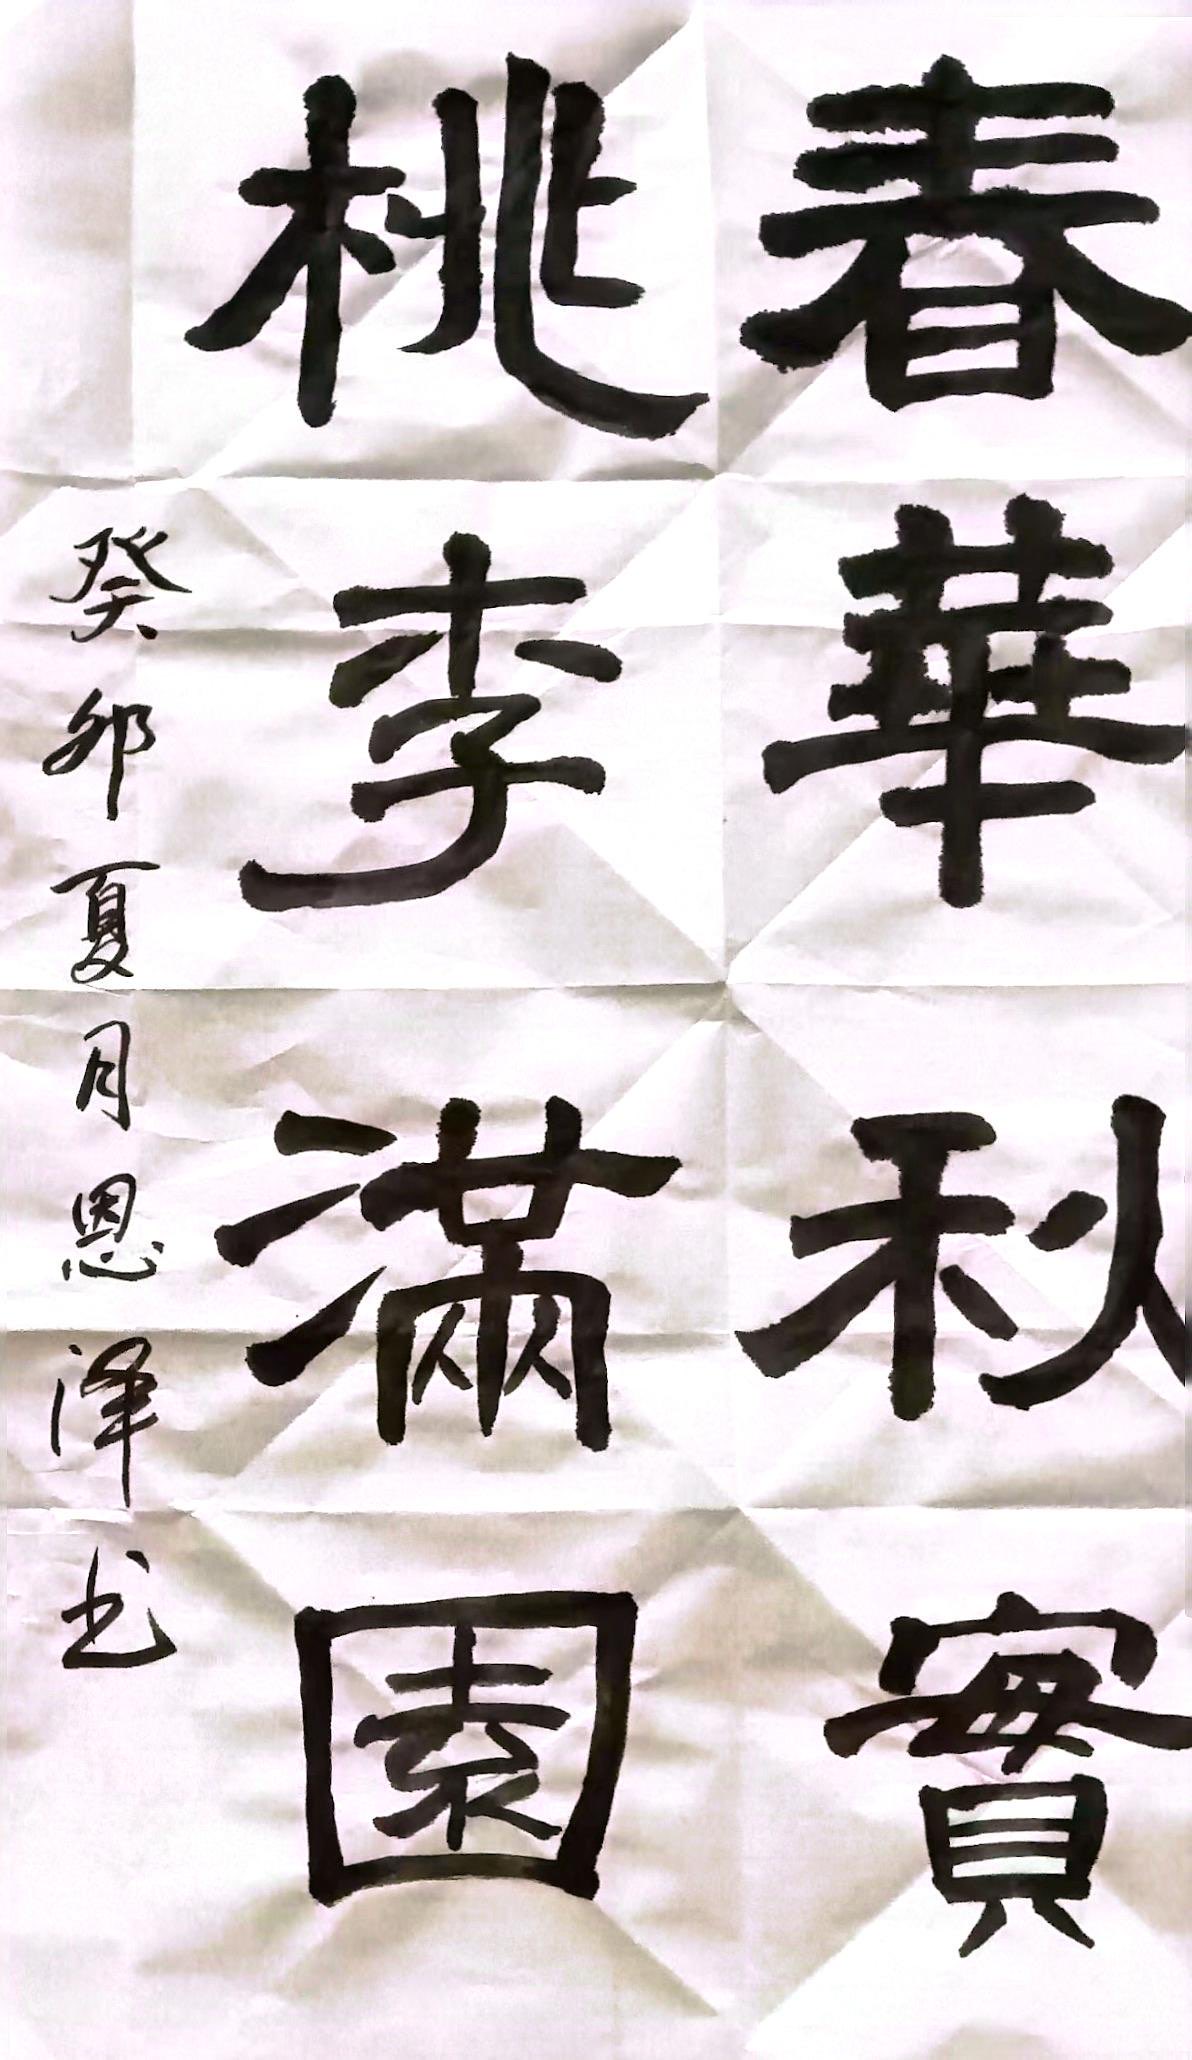 春華秋實
桃李滿園
癸卯夏月恩泽书